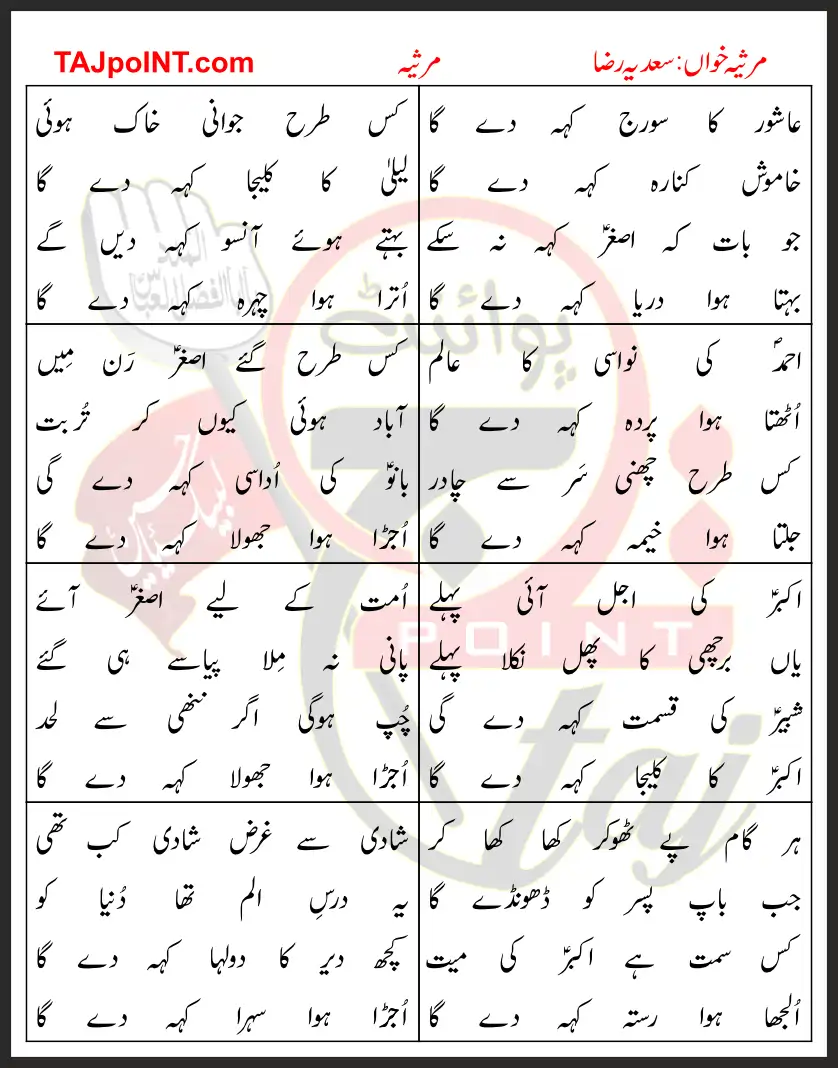 مرثیہ خواں: سعدیہ رضا
مرثیہ
TAJpoINT.com
عاشور کا سورج کہہ دے گا
خاموش کنارہ کہہ دے گا
جو بات کہ اصغرؑ کہہ نہ سکے
بہتا ہوا دریا کہہ دے گا
کس طرح جوانی خاک ہوئی
لیلیٰ کا کلیجا کہہ دے گا
بہتے ہوئے آنسو کہہ دیں گے
اُترا ہوا چہرہ کہہ دے گا
احمدؐ کی نواسی کا عالم
اُٹھتا ہوا پردہ کہہ دے گا
کس طرح چھنی سَر سے چادر
جلتا ہوا خیمہ کہہ دے گا
کس طرح گئے اصغرؑ رَن مِیں
آباد ہوئی کیوں کر تُربت
بانوؑ کی اُداسی کہہ دے گی
اُجڑا ہوا جھولا کہہ دے گا
اکبرؑ کی اجل آئی پہلے
یاں برچھی کا پھل نکلا پہلے
شبیرؑ کی قسمت کہہ دے گی
اکبرؑ کا کلیجا کہہ دے گا
اُمت کے لیے اصغرؑ آئے
پانی نہ مِلا پیاسے ہی گئے
چُپ ہوگی اگر ننھی سے لحد
اُجڑا ہوا جھولا کہہ دے گا
ہر گام پے ٹھوکر کھا کھا کر
جب باپ پسر کو ڈھونڈے گا
کس سمت ہے اکبرؑ کی میت
اُلجھا ہوا رستہ کہہ دے گا
شادی سے غرض شادی کب تھی
یہ درسِ الم تھا دُنیا کو
کچھ دیر کا دولہا کہہ دے گا
اُجڑا ہوا سہرا کہہ دے گا
پوائینٹ
POINT
taj
لبیک یا حسینؑ